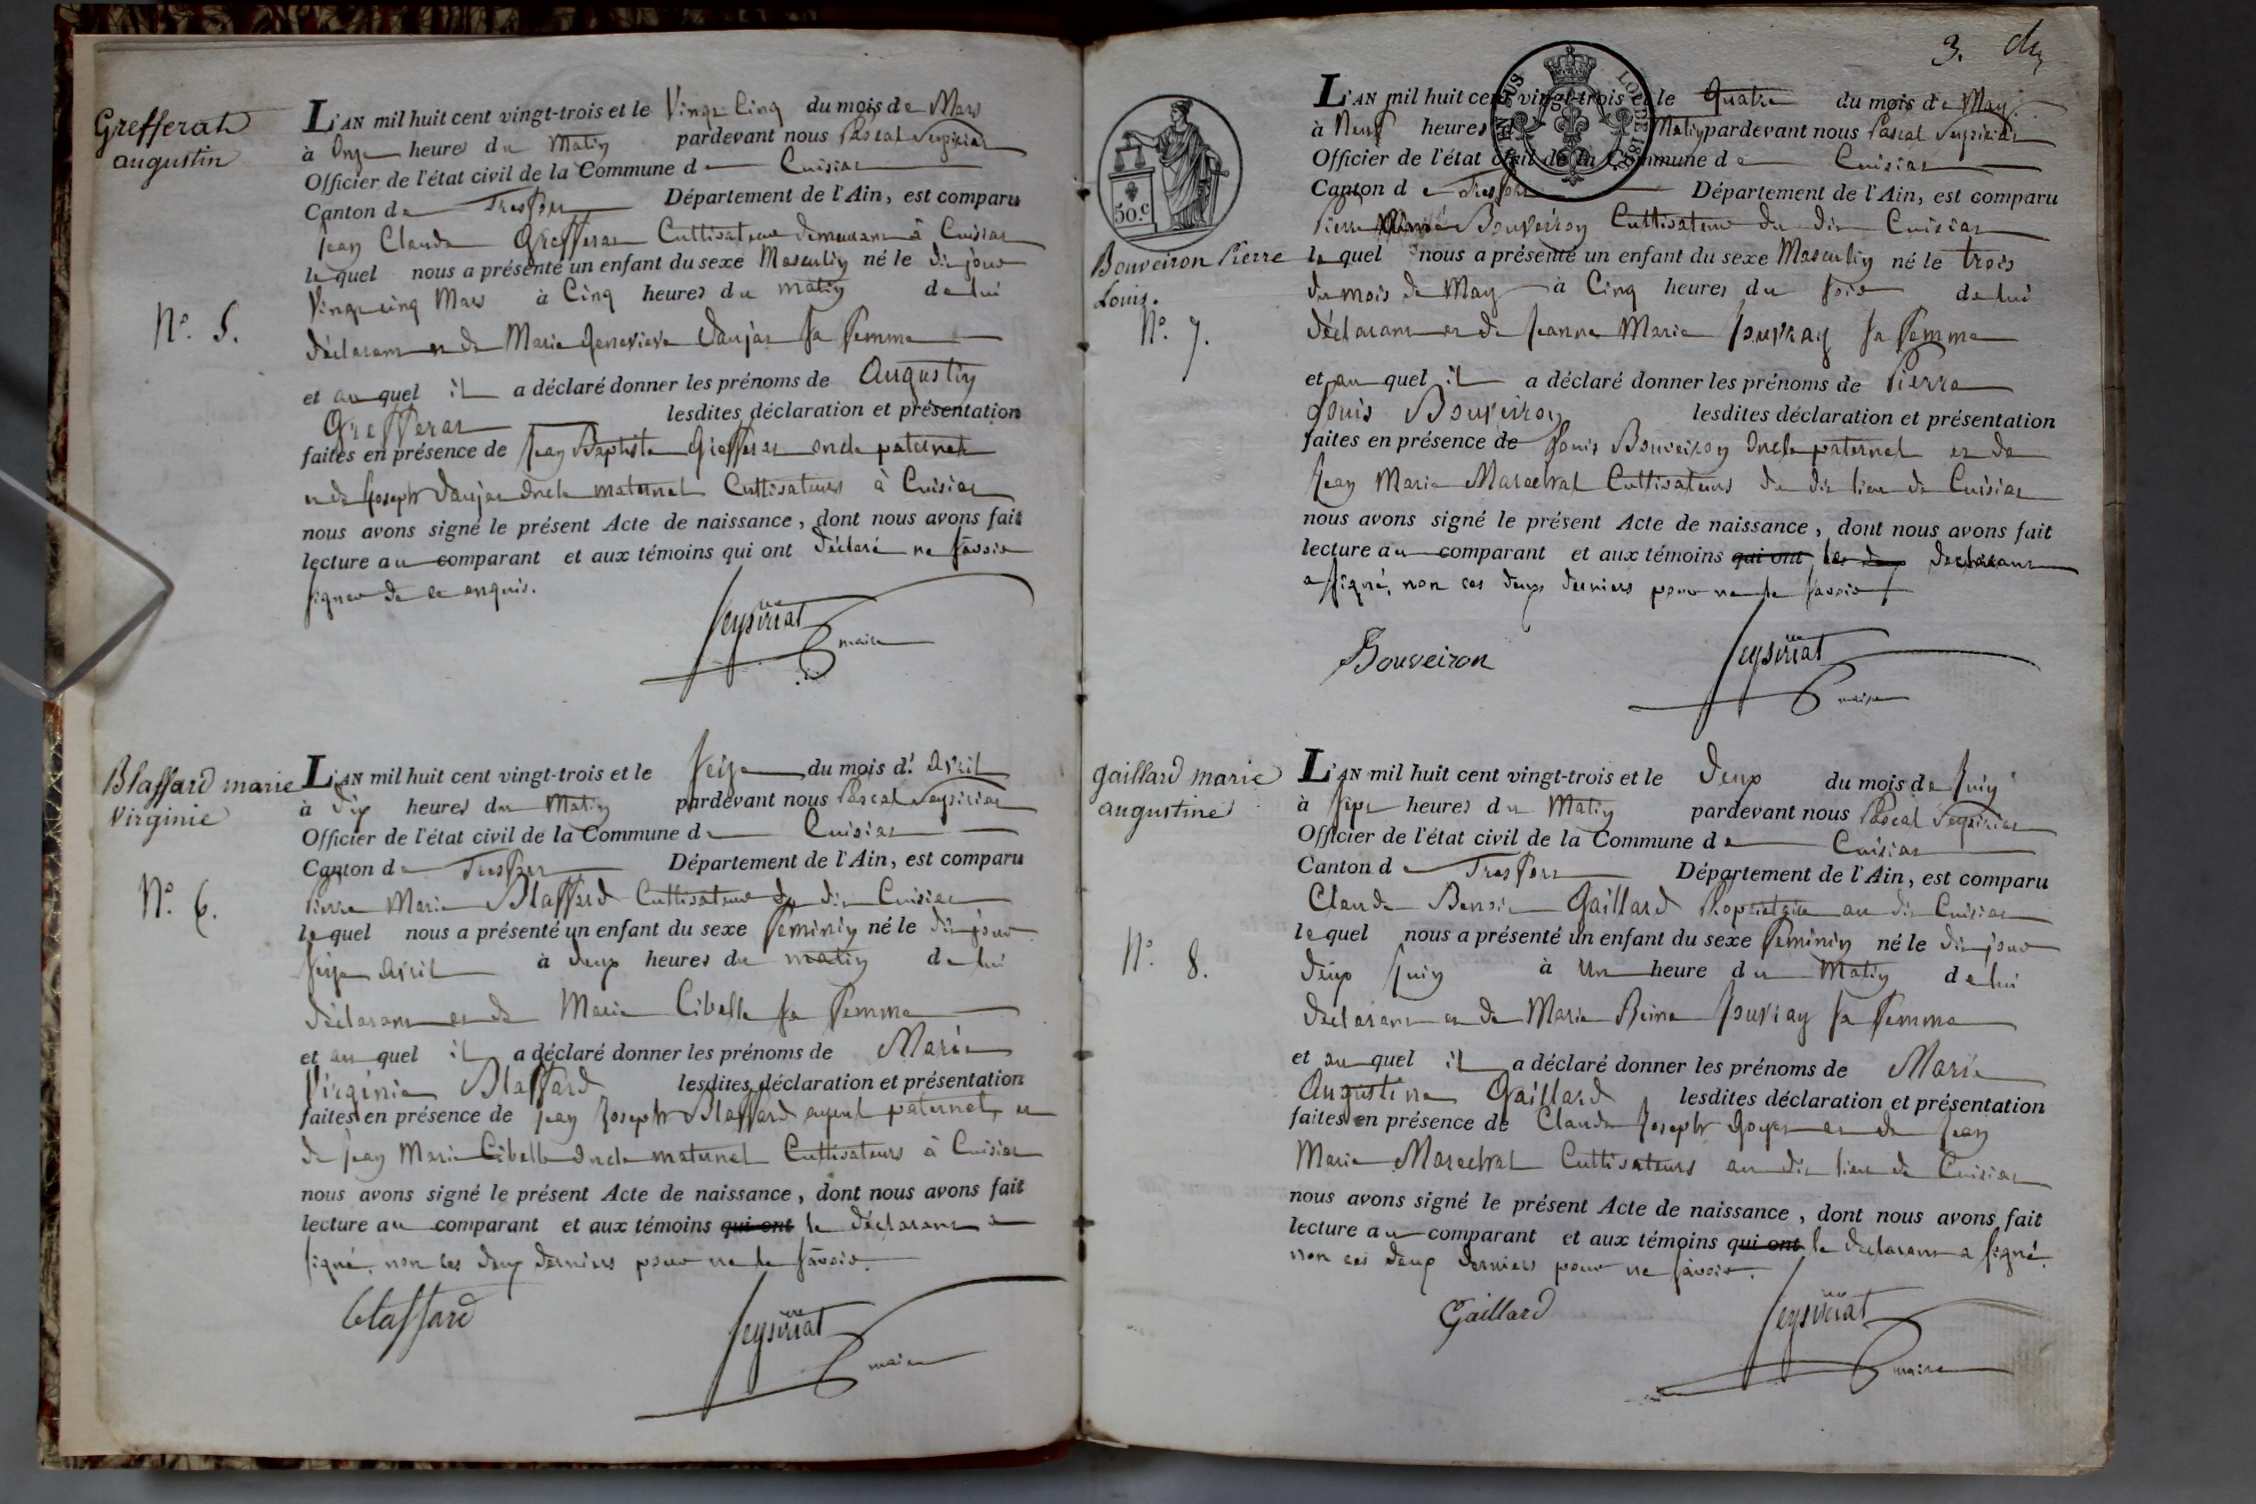 Grefferat
augustin
N.º 5.
L'AN mil huit cent vingt-trois et le Vingt Cinq du mois de Mars
à Onze heures du Matin pardevant nous Pascal Seysiriat
Officier de l'état civil de la Commune de Cuisiat
Canton de Treffort Département de l'Ain, est comparu
Jean Claude Grefferat Cultivateur demeurant à Cuisiat
lequel nous a présenté un enfant du sexe Masculin né le dit jour
Vingt cinq Mars à Cinq heures du matin de lui
déclarant et de Marie Genevieve Daujat sa femme
et au quel il a déclaré donner les prénoms de Augustin
Grefferat lesdites déclaration et présentation
faites en présence de Jean Baptiste Grefferat oncle paternel
et de Joseph Daujat oncle maternel Cultivateurs à Cuisiat
nous avons signé le présent Acte de naissance, dont nous avons fait
lecture au comparant et aux témoins qui ont déclaré ne savoir
signer de ce enquis.
Seysiriat
maire
Blaffard marie
Virginie
N.º 6.
L'AN mil huit cent vingt-trois et le Seize du mois d'. Avril
à dix heures du Matin pardevant nous Pascal Seysiriat
Officier de l'état civil de la Commune de Cuisiat
Canton de Treffort Département de l'Ain, est comparu
Pierre Marie Blaffard Cultivateur du dit Cuisiat
lequel nous a présenté un enfant du sexe feminin né le dit jour
seize Avril à deux heures du matin de lui
déclarant et de Marie Cibelle sa femme
et au quel il a déclaré donner les prénoms de Marie
Virginie Blaffard lesdites déclaration et présentation
faites en présence de Jean Joseph Blaffard ayeul paternel, et
de Jean Marie Cibelle oncle maternel Cultivateurs à Cuisiat
nous avons signé le présent Acte de naissance, dont nous avons fait
lecture au comparant et aux témoins qui ont le déclarant a
signé, non les deux derniers pour ne le savoir.
blaffard
Seysiriat
maire
3.
50.c
Bouveiron Pierre
Louis.
N.º 7.
L'AN mil huit cent vingt-trois et le Quatre du mois de May
à Neuf heures Matin pardevant nous Pascal Seysiriat
Officier de l'état civil de la Commune de Cuisiat
Canton de Treffort Département de l'Ain, est comparu
Pierre Bouveiron Cultivateur du dit Cuisiat
lequel nous a présenté un enfant du sexe Masculin né le trois
du mois de May à Cinq heures du soir de lui
déclarant et de Jeanne Marie Jouvray sa femme
et au quel il a déclaré donner les prénoms de Pierre
Louis Bouveiron lesdites déclaration et présentation
faites en présence de Louis Bouveiron Oncle paternel et de
Jean Marie Marechal Cultivateurs du dit lieu de Cuisiat
nous avons signé le présent Acte de naissance, dont nous avons fait
lecture au comparant et aux témoins qui ont les deux déclarant
a signé, non ces deux derniers pour ne le savoir
Bouveiron
Seysiriat
maire
gaillard marie
augustine
N.º 8.
L'AN mil huit cent vingt-trois et le deux du mois de Juin
à sept heures du Matin pardevant nous Pascal Seysiriat
Officier de l'état civil de la Commune de Cuisiat
Canton de Treffort Département de l'Ain, est comparu
Claude Benoit Gaillard Propriétaire au dit Cuisiat
lequel nous a présenté un enfant du sexe feminin né le dit jour
deux Juin à Un heure du Matin de lui
déclarant et de Marie Reine Jouvray sa femme
et au quel il a déclaré donner les prénoms de Marie
Augustine Gaillard lesdites déclaration et présentation
faites en présence de Claude Joseph Goyet et de Jean
Marie Marechal Cultivateurs au dit lieu de Cuisiat
nous avons signé le présent Acte de naissance, dont nous avons fait
lecture au comparant et aux témoins qui ont le déclarant a signé.
non ces deux derniers pour ne savoir.
Gaillard
Seysiriat
maire